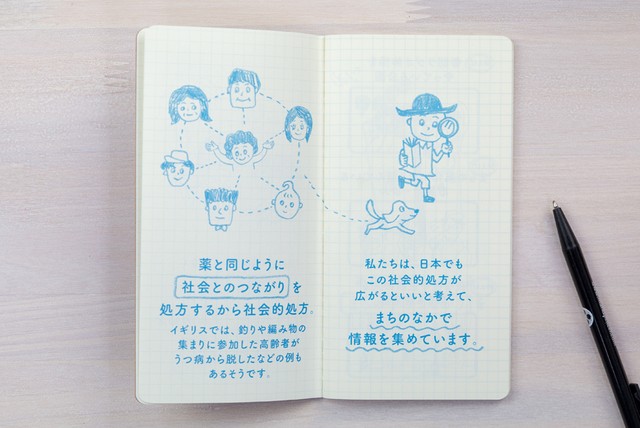 薬と同じように
社会とのつながりを
処方するから社会的処方。
イギリスでは、釣りや編み物の
集まりに参加した高齢者が
うつ病から脱したなどの例も
あるそうです。
私たちは、日本でも
この社会的処方が
広がるといいと考えて、
まちのなかで
情報を集めています。